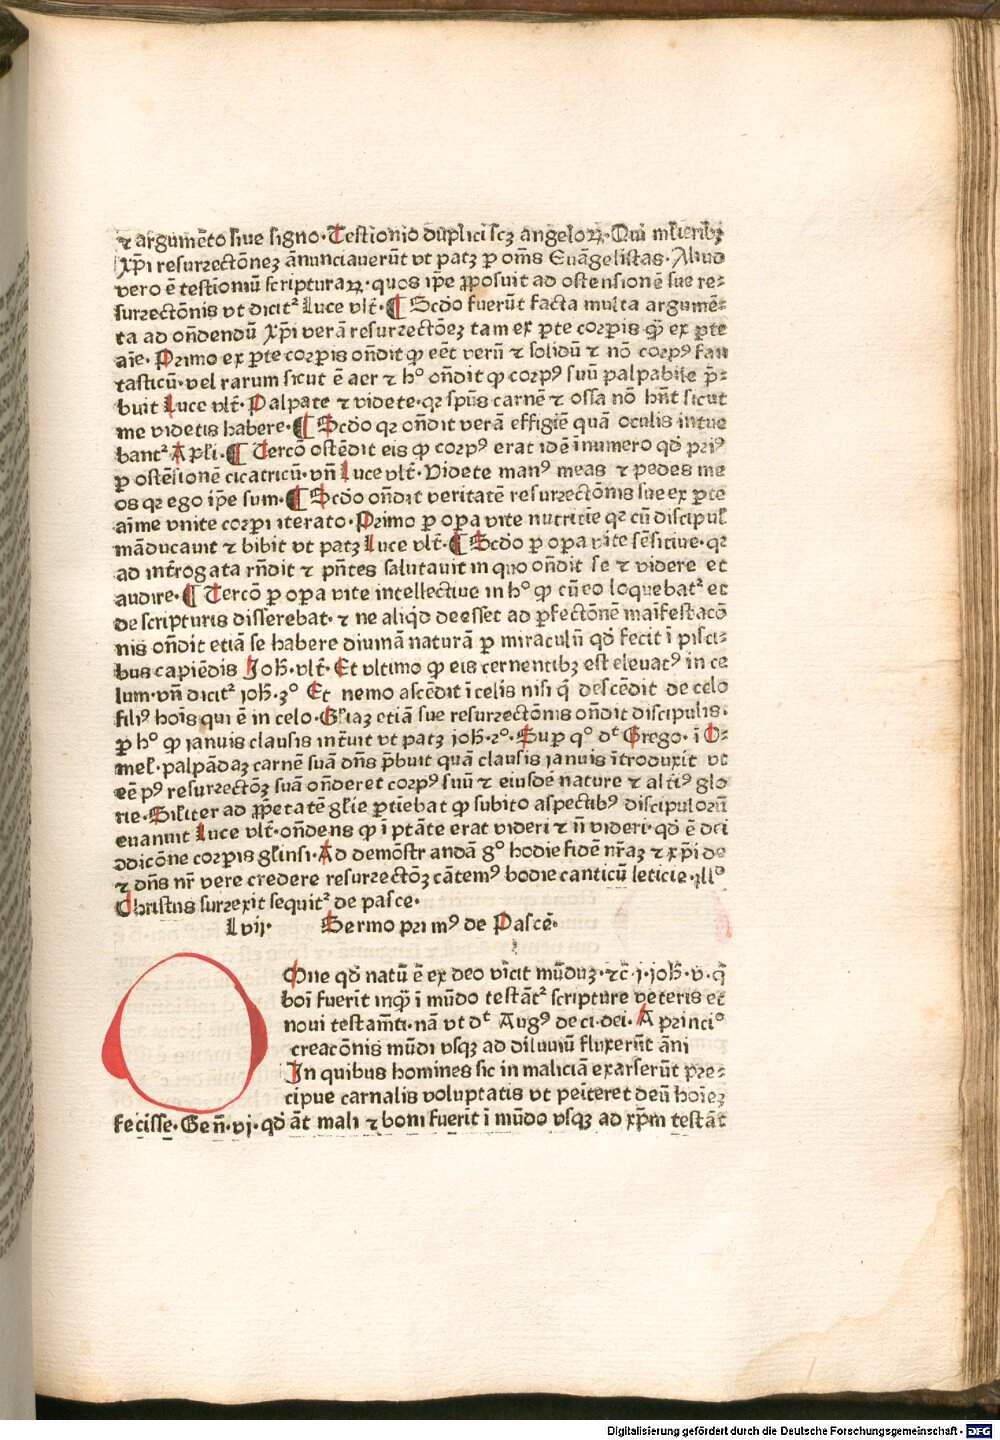 ⁊ argumēto siue signo· Testionio dūplici scꝫ angeloꝝ· Qui mͣlieribꝫ
xp̄i resurrectōneꝫ ānunciauerūt vt patꝫ ꝑ om̄s Euāgelistas· Aliud
vero ē testioniū scripturaꝝ· quos ip̄e ꝓposuit ad ostensionē sue re⸗
surrectōnis vt dicitᷣ Luce vlt̄· ¶ Scdo fuerūt facta multa argumē⸗
ta ad on̄dendū xp̄i verā resurrectōeꝫ tam ex ꝑte corꝑis qͣꝫ ex ꝑte
aīe· Primo ex ꝑte corꝑis on̄dit ꝙ eēt verū ⁊ solidū ⁊ nō corpꝰ fan
tasticū· vel rarum sicut ē aer ⁊ hº on̄dit ꝙ corpꝰ suū palpabile p̄⸗
buit Luce vlt̄· Palpate ⁊ videte· qꝛ spūs carnē ⁊ ossa nō hn̄t sicut
me videtis habere· ¶ Scdo qꝛ on̄dit verā effigiē quā oculis intue
bantᷣ Apl̄i· ¶ Tercō ostēdit eis ꝙ corpꝰ erat idē ī numero qd̄ priꝰ
ꝑ ostēsionē cicatricū· vn̄ Luce vlt̄· Videte manꝰ meas ⁊ pedes me
os qꝛ ego ip̄e sum· ¶ Scdo on̄dit veritatē resurrectōnis sue ex ꝑte
aīme vnite corpi iterato· Primo ꝑ opa vite nutritie qꝛ cū discipul̄
māducauit ⁊ bibit vt patꝫ Luce vlt̄· ¶ Scdo ꝑ opa vite sēsitiue· qꝛ
ad int̄rogata rn̄dit ⁊ pn̄tes salutauit in quo on̄dit se ⁊ videre et
audire· ¶ Tercō ꝑ opa vite intellectiue in hº ꝙ cū eo loquebatᷣ et
de scripturis disserebat· ⁊ ne aliqd̄ deesset ad ꝑfectōnē maīfestacō
nis on̄dit etiā se habere diuinā naturā ꝑ miraculū qd̄ fecit ī pisci⸗
bus capiēdis Joh̄· vlt̄· Et vltimo ꝙ eis cernentibꝫ est eleuatꝰ in ce
lum· vn̄ dicitᷣ ioh̄· 3º Et nemo ascēdit ī celis nisi q̄ descēdit de celo
filiꝰ hoīs qui ē in celo· Gl̄iaꝫ etiā sue resurrectōnis on̄dit discipulis·
ꝑ hº ꝙ ianuis clausis int̄uit vt patꝫ ioh̄· 2º· Sup qº dᵗ Grego· ī O⸗
mel̄· palpādaꝫ carnē suā dn̄s p̄buit quā clausis ianuis ītroduxit vt
eē pꝰ resurrectōꝫ suā on̄deret corpꝰ suū ⁊ eiusdē nature ⁊ alt̄iꝰ glo
rie· Sil̄iter ad ꝓpetatē gl̄ie ꝑtiēbat ꝙ subito aspectibꝰ discipulorū
euanuit Luce vlt̄· on̄dens ꝙ ī ptāte erat videri ⁊ n̄ videri· qd̄ ē dei
ɔdicōne corꝑis gl̄insi· Ad demōstr andā gº hodie fidē nr̄aꝫ ⁊ xp̄i de
⁊ dn̄s nr̄ vere credere resurrectōꝫ cātemꝰ hodie canticū leticie· illº
Christus surrexit sequitᷣ de pasce·
Lvij· Sermo pri mꝰ de Pascē·
Omne qd̄ natū ē ex deo vīcit mūduꝫ· ⁊c̄ ·j· joh̄· v· q̄
boī fuerīt inqͣꝫ ī mūdo testāt᷑ scripture veteris et
noui testam̄ti· nā vt dᵗ Augꝰ de ci· dei· A princiº
creacōnis mūdi vsqꝫ ad diluuiū fluxerūt āni
In quibus homines sic in maliciā exarserūt pre⸗
cipue carnalis voluptatis vt peīteret deū hoīeꝫ
fecisse· Gen̄· vj· qd̄ āt mali ⁊ boni fuerīt ī mūdo vsqꝫ ad xp̄m testāt
Digitalisierung gefördert durch die Deutsche Forschungsgemeinschaft - DFG